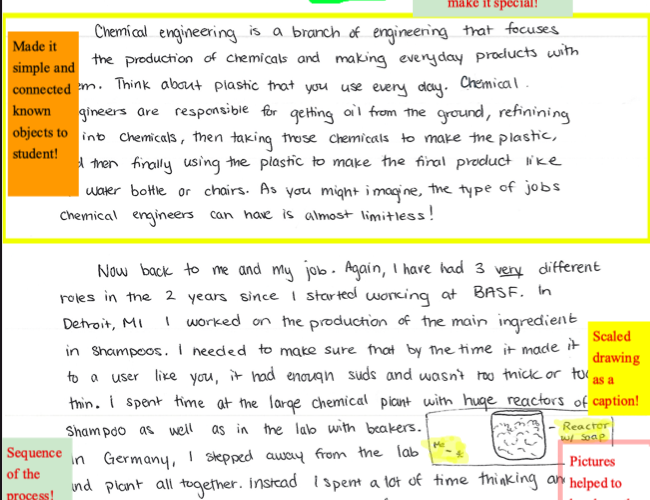 make it special!
Made it
simple and
connected
known
objects to
student!
Chemical engineering is a branch of engineering that focuses
the production of chemicals and making everyday products with
em. Think about plastic that you use every day. Chemical
gineers are responsible for getting oil from the ground, refinining
into chemicals, then taking those chemicals to make the plastic,
then finally using the plastic to make the final product like
water bottle or chairs. As you might imagine, the type of jobs
chemical engineers can have is almost limitless!
Now back to me and my job. Again, I have had 3 very different
roles in the 2 years since I started working at BASF. In
Detroit, MI I worked on the production of the main ingredient
in shampoos. I needed to make sure that by the time it made it
to a user like you, it had enough suds and wasn't too thick or too
thin. I spent time at the large chemical plant with huge reactors of
shampoo as well as in the lab with beakers.
In Germany, I stepped away from the lab
and plant all together. Instead I spent a lot of time thinking an
Scaled
drawing
as a
caption!
Me
Reactor
w/ soap
Sequence
of the
process!
Pictures
helped to